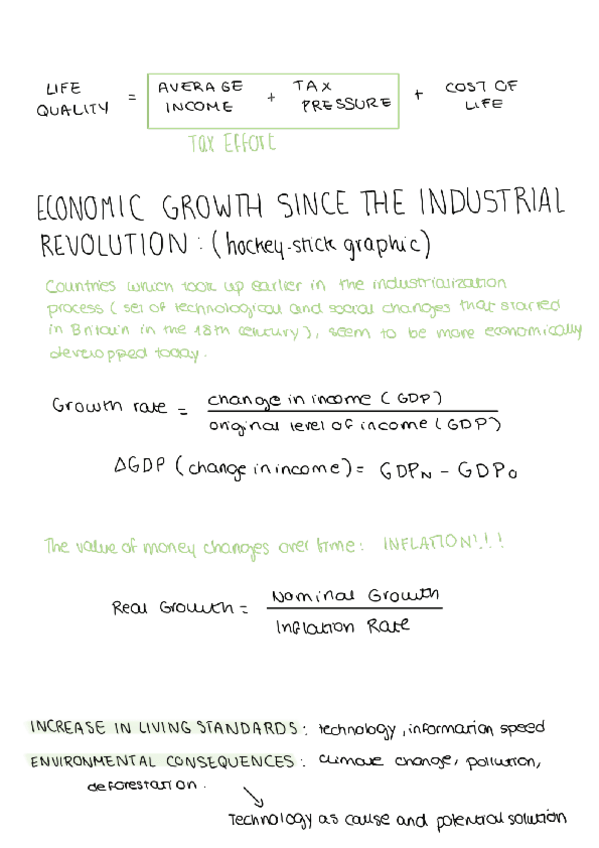 LIFE QUALITY = AVERAGE INCOME + TAX PRESSURE + COST OF LIFE
TAX EFFORT
ECONOMIC GROWTH SINCE THE INDUSTRIAL
REVOLUTION : (hockey-stick graphic)
Countries which took up earlier in the industrialization
process ( set of technological and social changes that started
in Britain in the 18th century ), seem to be more economically
developped today.
Growth rate = change in income ( GDP )
original level of income ( GDP )
ΔGDP ( change in income ) = GDPN - GDPO
The value of money changes over time : INFLATION!!!
Real Growth = Nominal Growth
Inflation Rate
INCREASE IN LIVING STANDARDS : technology, information speed
ENVIRONMENTAL CONSEQUENCES : climate change, pollution,
deforestation.
Technology as cause and potential solution